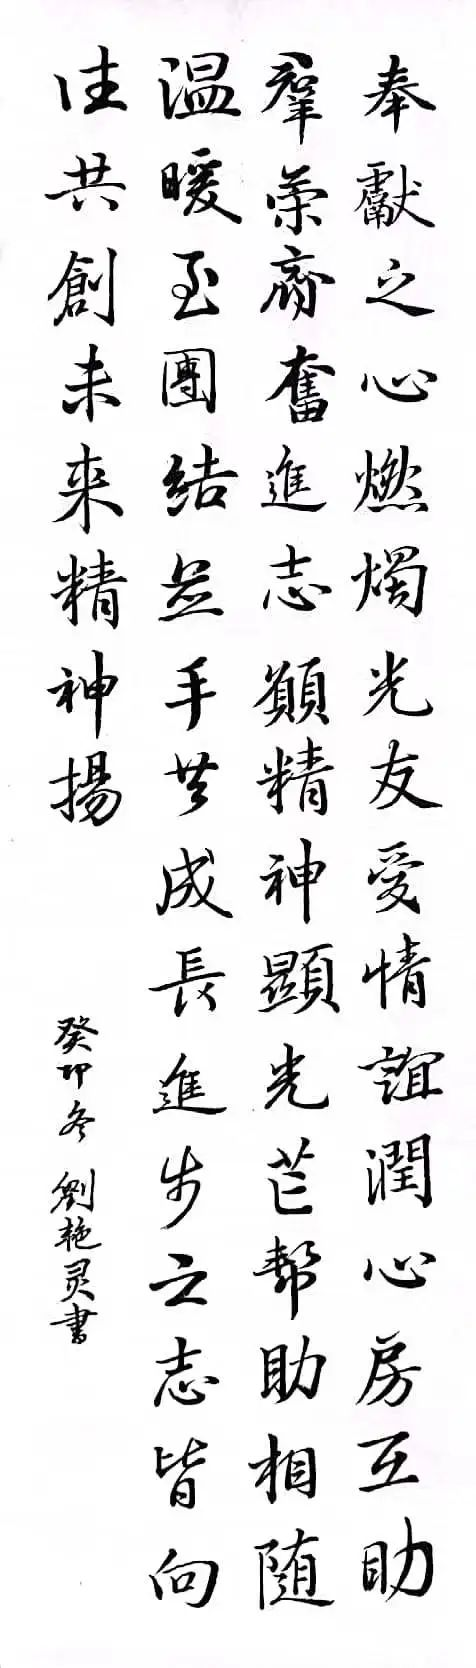 奉獻之心燃燭光友愛情誼潤心房互助
羣策齊奮進志願精神顯光芒幫助相随
温暖至團結並手共成長進步之志皆向
往共創未来精神揚
癸卯冬劉艳灵書